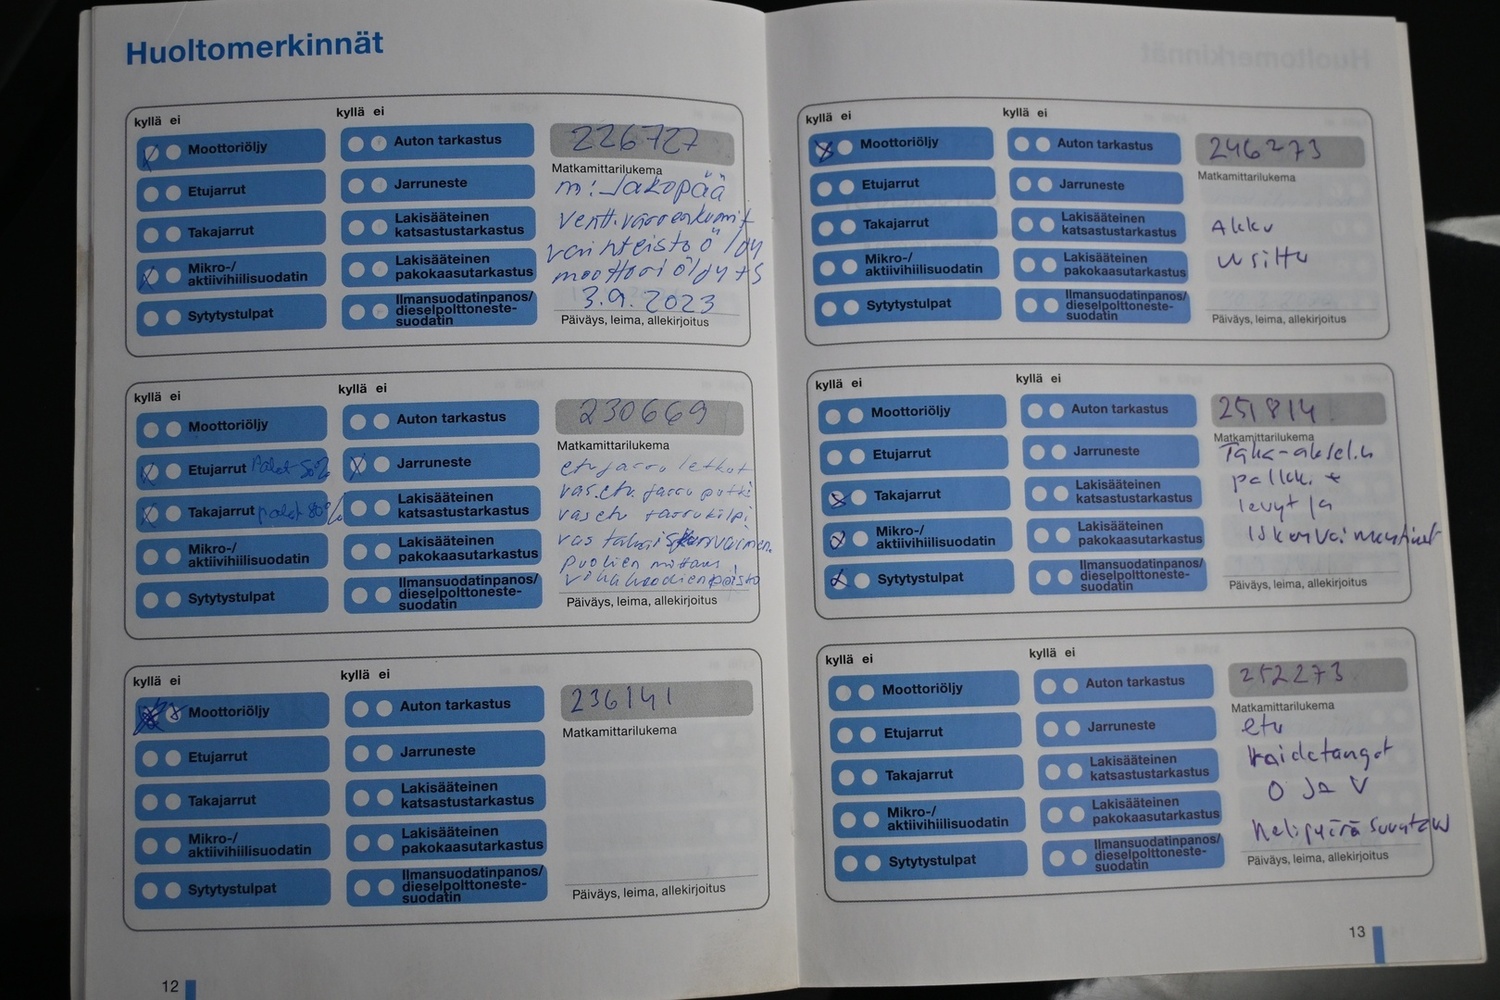 Huoltomerkinnät
kyllä ei
kyllä ei
Moottoriöljy
Etujarrut
Takajarrut
Mikro-/
aktiivihiilisuodatin
Sytytystulpat
Auton tarkastus
Jarruneste
Lakisääteinen
katsastustarkastus
Lakisääteinen
pakokaasutarkastus
Ilmansuodatinpanos/
dieselpolttoneste-
suodatin
226727
Matkamittarilukema
m: Jakopää
vaihteistoöljy
moottoriöljy +s
3.9.2023
Päiväys, leima, allekirjoitus
kyllä ei
kyllä ei
Moottoriöljy
Etujarrut Palat 50%
Takajarrut palat 80%
Mikro-/
aktiivihiilisuodatin
Sytytystulpat
Auton tarkastus
Jarruneste
Lakisääteinen
katsastustarkastus
Lakisääteinen
pakokaasutarkastus
Ilmansuodatinpanos/
dieselpolttoneste-
suodatin
230669
Matkamittarilukema
etujarru letkut
vas.etu. jarru putki
vas etu jarrukilpi
vas taka iskunvaimen.
puolien mittaus
vikakoodien poisto
Päiväys, leima, allekirjoitus
kyllä ei
kyllä ei
Moottoriöljy
Etujarrut
Takajarrut
Mikro-/
aktiivihiilisuodatin
Sytytystulpat
Auton tarkastus
Jarruneste
Lakisääteinen
katsastustarkastus
Lakisääteinen
pakokaasutarkastus
Ilmansuodatinpanos/
dieselpolttoneste-
suodatin
236141
Matkamittarilukema
Päiväys, leima, allekirjoitus
12
kyllä ei
kyllä ei
Moottoriöljy
Etujarrut
Takajarrut
Mikro-/
aktiivihiilisuodatin
Sytytystulpat
Auton tarkastus
Jarruneste
Lakisääteinen
katsastustarkastus
Lakisääteinen
pakokaasutarkastus
Ilmansuodatinpanos/
dieselpolttoneste-
suodatin
246273
Matkamittarilukema
Akku
usittu
Päiväys, leima, allekirjoitus
kyllä ei
kyllä ei
Moottoriöljy
Etujarrut
Takajarrut
Mikro-/
aktiivihiilisuodatin
Sytytystulpat
Auton tarkastus
Jarruneste
Lakisääteinen
katsastustarkastus
Lakisääteinen
pakokaasutarkastus
Ilmansuodatinpanos/
dieselpolttoneste-
suodatin
251814
Matkamittarilukema
Taka-akselin
palkki +
levyt ja
Iskunvaimentimet
Päiväys, leima, allekirjoitus
kyllä ei
kyllä ei
Moottoriöljy
Etujarrut
Takajarrut
Mikro-/
aktiivihiilisuodatin
Sytytystulpat
Auton tarkastus
Jarruneste
Lakisääteinen
katsastustarkastus
Lakisääteinen
pakokaasutarkastus
Ilmansuodatinpanos/
dieselpolttoneste-
suodatin
252273
Matkamittarilukema
etu
Raidetangot
O Ja V
Nelipyöräsuuntaus
Päiväys, leima, allekirjoitus
13